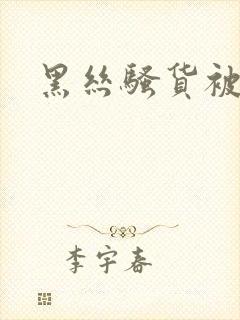 黑丝骚货被
李宇春